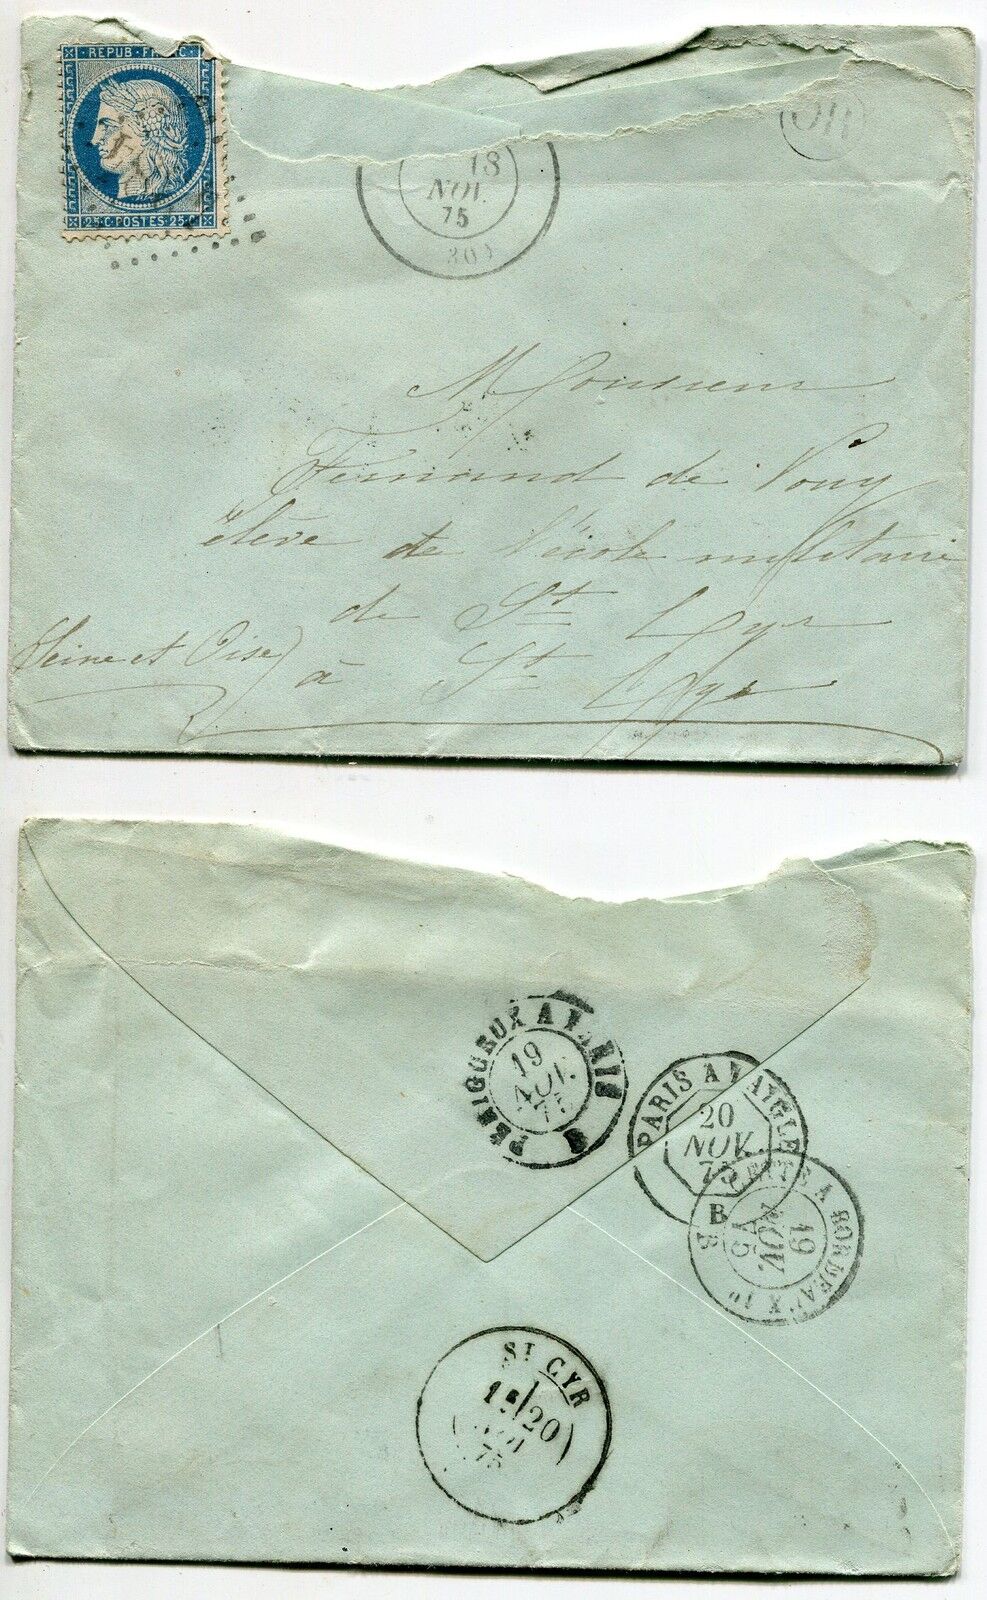 REPUB FRANC
25 C POSTES 25 C
18
NOV.
75
(30)
OR
Monsieur
Fernand de Vouy
élève de l'école militaire
de St Cyr
(Seine et Oise) à St Cyr
PÉRIGUEUX A PARIS
19
NOV.
75
PARIS A LAIGLE
20
NOV.
75
B
CETTE A BORDEAUX 1º
19
NOV.
75
B
ST CYR
20
NOV
75